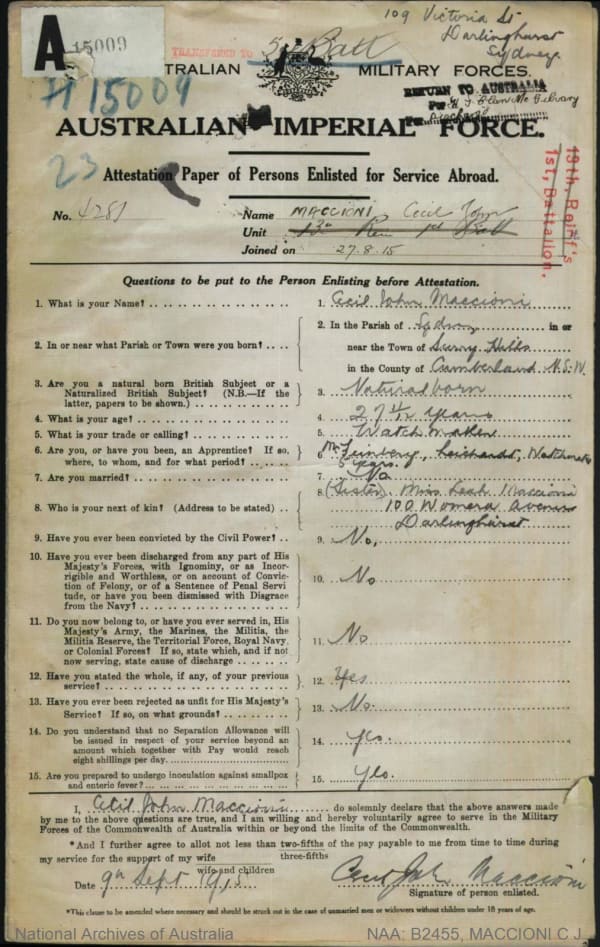 109 Victoria St
Darlinghurst
Sydney
A 15009
TRANSFERRED TO Batt
AUSTRALIAN MILITARY FORCES.
H 15009
RETURN TO AUSTRALIA
AUSTRALIAN IMPERIAL FORCE.
23
Attestation Paper of Persons Enlisted for Service Abroad.
13th Reinf's
1st. Battalion.
No. 4281
Name MACCIONI Cecil John
Unit 13th Rein 1st Batt
Joined on 27.8.15
Questions to be put to the Person Enlisting before Attestation.
1. What is your Name? 1. Cecil John Maccioni
2. In or near what Parish or Town were you born? 2. In the Parish of Sydney in or
near the Town of Surry Hills
in the County of Cumberland N.S.W.
3. Are you a natural born British Subject or a
Naturalized British Subject? (N.B.—If the
latter, papers to be shown.) 3. Natural born
4. What is your age? 4. 27 years
5. What is your trade or calling? 5. Watch maker
6. Are you, or have you been, an Apprentice? If so,
where, to whom, and for what period? 6. Mr Leichardt, Watchmaker
5 years.
7. Are you married? 7. No
8. Who is your next of kin? (Address to be stated) 8. (Sister) Miss Leah Maccioni
100 Womera Avenue
Darlinghurst
9. Have you ever been convicted by the Civil Power? 9. No.
10. Have you ever been discharged from any part of His
Majesty's Forces, with Ignominy, or as Incor-
rigible and Worthless, or on account of Convic-
tion of Felony, or of a Sentence of Penal Servi
tude, or have you been dismissed with Disgrace
from the Navy? 10. No
11. Do you now belong to, or have you ever served in, His
Majesty's Army, the Marines, the Militia, the
Militia Reserve, the Territorial Force, Royal Navy,
or Colonial Forces? If so, state which, and if not
now serving, state cause of discharge 11. No
12. Have you stated the whole, if any, of your previous
service? 12. Yes
13. Have you ever been rejected as unfit for His Majesty's
Service? If so, on what grounds? 13. No.
14. Do you understand that no Separation Allowance will
be issued in respect of your service beyond an
amount which together with Pay would reach
eight shillings per day. 14. Yes.
15. Are you prepared to undergo inoculation against smallpox
and enteric fever? 15. Yes.
I, Cecil John Maccioni do solemnly declare that the above answers made
by me to the above questions are true, and I am willing and hereby voluntarily agree to serve in the Military
Forces of the Commonwealth of Australia within or beyond the limits of the Commonwealth.
*And I further agree to allot not less than two-fifths of the pay payable to me from time to time during
three-fifths
my service for the support of my wife
wife and children
Date 9th Sept 1915 Cecil John Maccioni
Signature of person enlisted.
*This clause to be amended where necessary and should be struck out in the case of unmarried men or widowers without children under 18 years of age.
National Archives of Australia NAA: B2455, MACCIONI C J